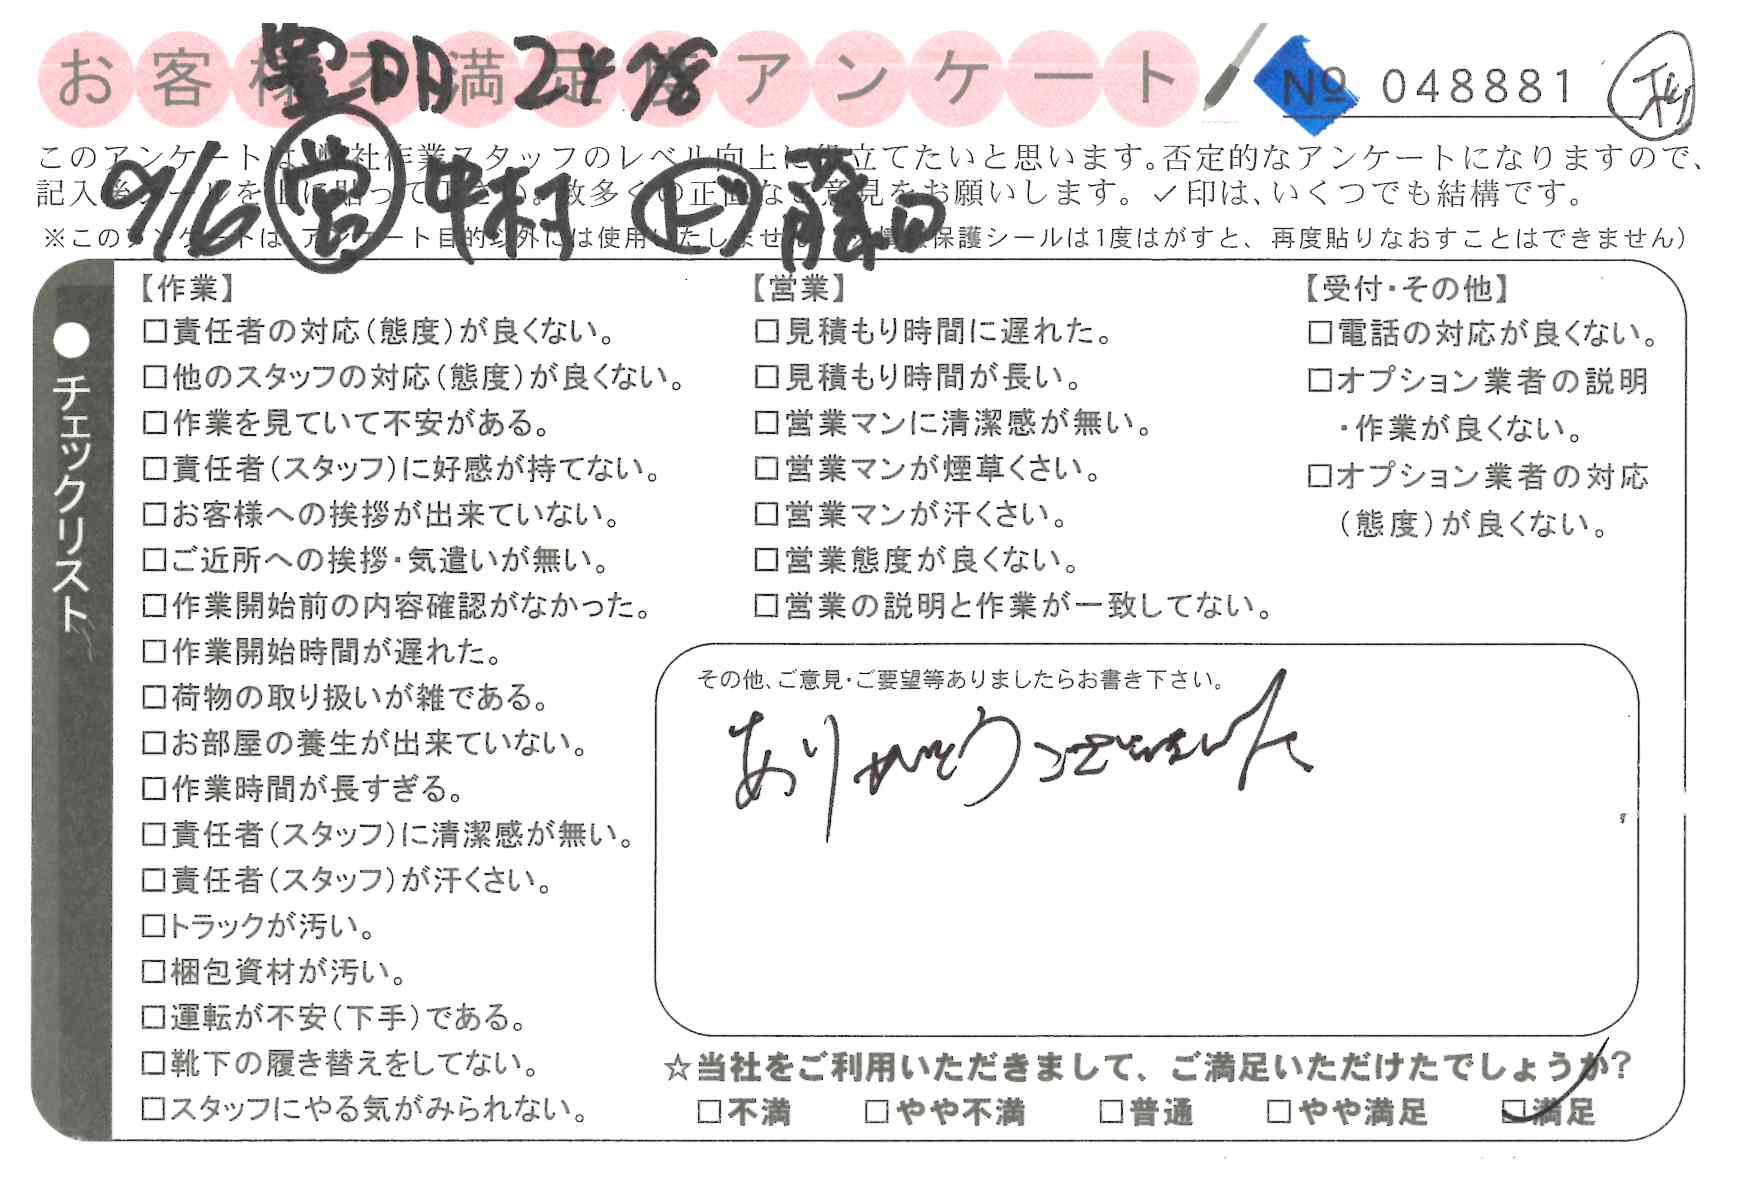 お客様不満足度アンケート № 048881
豊明 2478
このアンケートは、弊社作業スタッフのレベル向上に役立てたいと思います。否定的なアンケートになりますので、
記入後シールを上に貼って下さい。数多くの正直なご意見をお願いします。✓印は、いくつでも結構です。
9/6 営 中村 ド 藤田
※このアンケートは、アンケート目的以外には使用いたしません 保護シールは1度はがすと、再度貼りなおすことはできません）
●チェックリスト
【作業】
□責任者の対応（態度）が良くない。
□他のスタッフの対応（態度）が良くない。
□作業を見ていて不安がある。
□責任者（スタッフ）に好感が持てない。
□お客様への挨拶が出来ていない。
□ご近所への挨拶・気遣いが無い。
□作業開始前の内容確認がなかった。
□作業開始時間が遅れた。
□荷物の取り扱いが雑である。
□お部屋の養生が出来ていない。
□作業時間が長すぎる。
□責任者（スタッフ）に清潔感が無い。
□責任者（スタッフ）が汗くさい。
□トラックが汚い。
□梱包資材が汚い。
□運転が不安（下手）である。
□靴下の履き替えをしてない。
□スタッフにやる気がみられない。
【営業】
□見積もり時間に遅れた。
□見積もり時間が長い。
□営業マンに清潔感が無い。
□営業マンが煙草くさい。
□営業マンが汗くさい。
□営業態度が良くない。
□営業の説明と作業が一致してない。
【受付・その他】
□電話の対応が良くない。
□オプション業者の説明
・作業が良くない。
□オプション業者の対応
（態度）が良くない。
その他、ご意見・ご要望等ありましたらお書き下さい。
ありがとうございました
☆当社をご利用いただきまして、ご満足いただけたでしょうか？
□不満 □やや不満 □普通 □やや満足 □満足